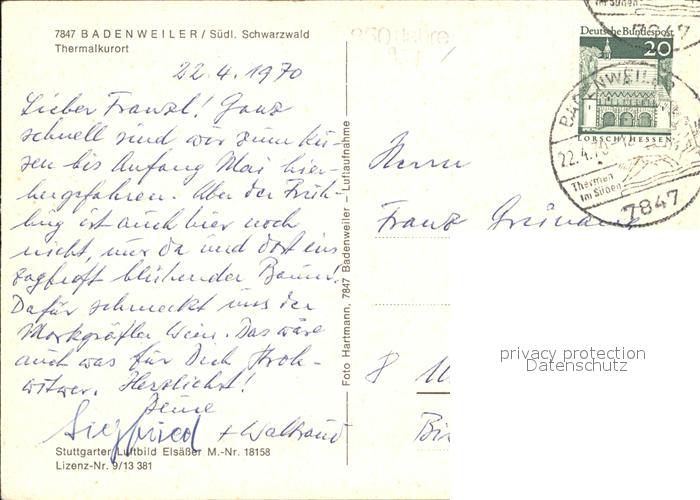 7847 BADENWEILER / Südl. Schwarzwald
Thermalkurort
22.4.1970
Lieber Franzl! Ganz
schnell sind wir zum Ku-
ren bis Anfang Mai hier-
hergefahren. Aber der Früh-
ling ist auch hier noch
nicht, nur da und dort ein
zaghaft blühender Baum!
Dafür schmeckt uns der
Markgräfler Wein. Das wäre
auch was für Dich Stroh-
witwer. Herzlichst!
Deine
Siegfried + Waltraud
Stuttgarter Luftbild Elsäßer M.-Nr. 18158
Lizenz-Nr. 9/13 381
Foto Hartmann, 7847 Badenweiler – Luftaufnahme
Deutsche Bundespost
20
LORSCH/HESSEN
BADENWEILER
22.4.70
Thermen
im Süden
7847
im Süden
7847
Herrn
Franz
8
privacy protection
Datenschutz